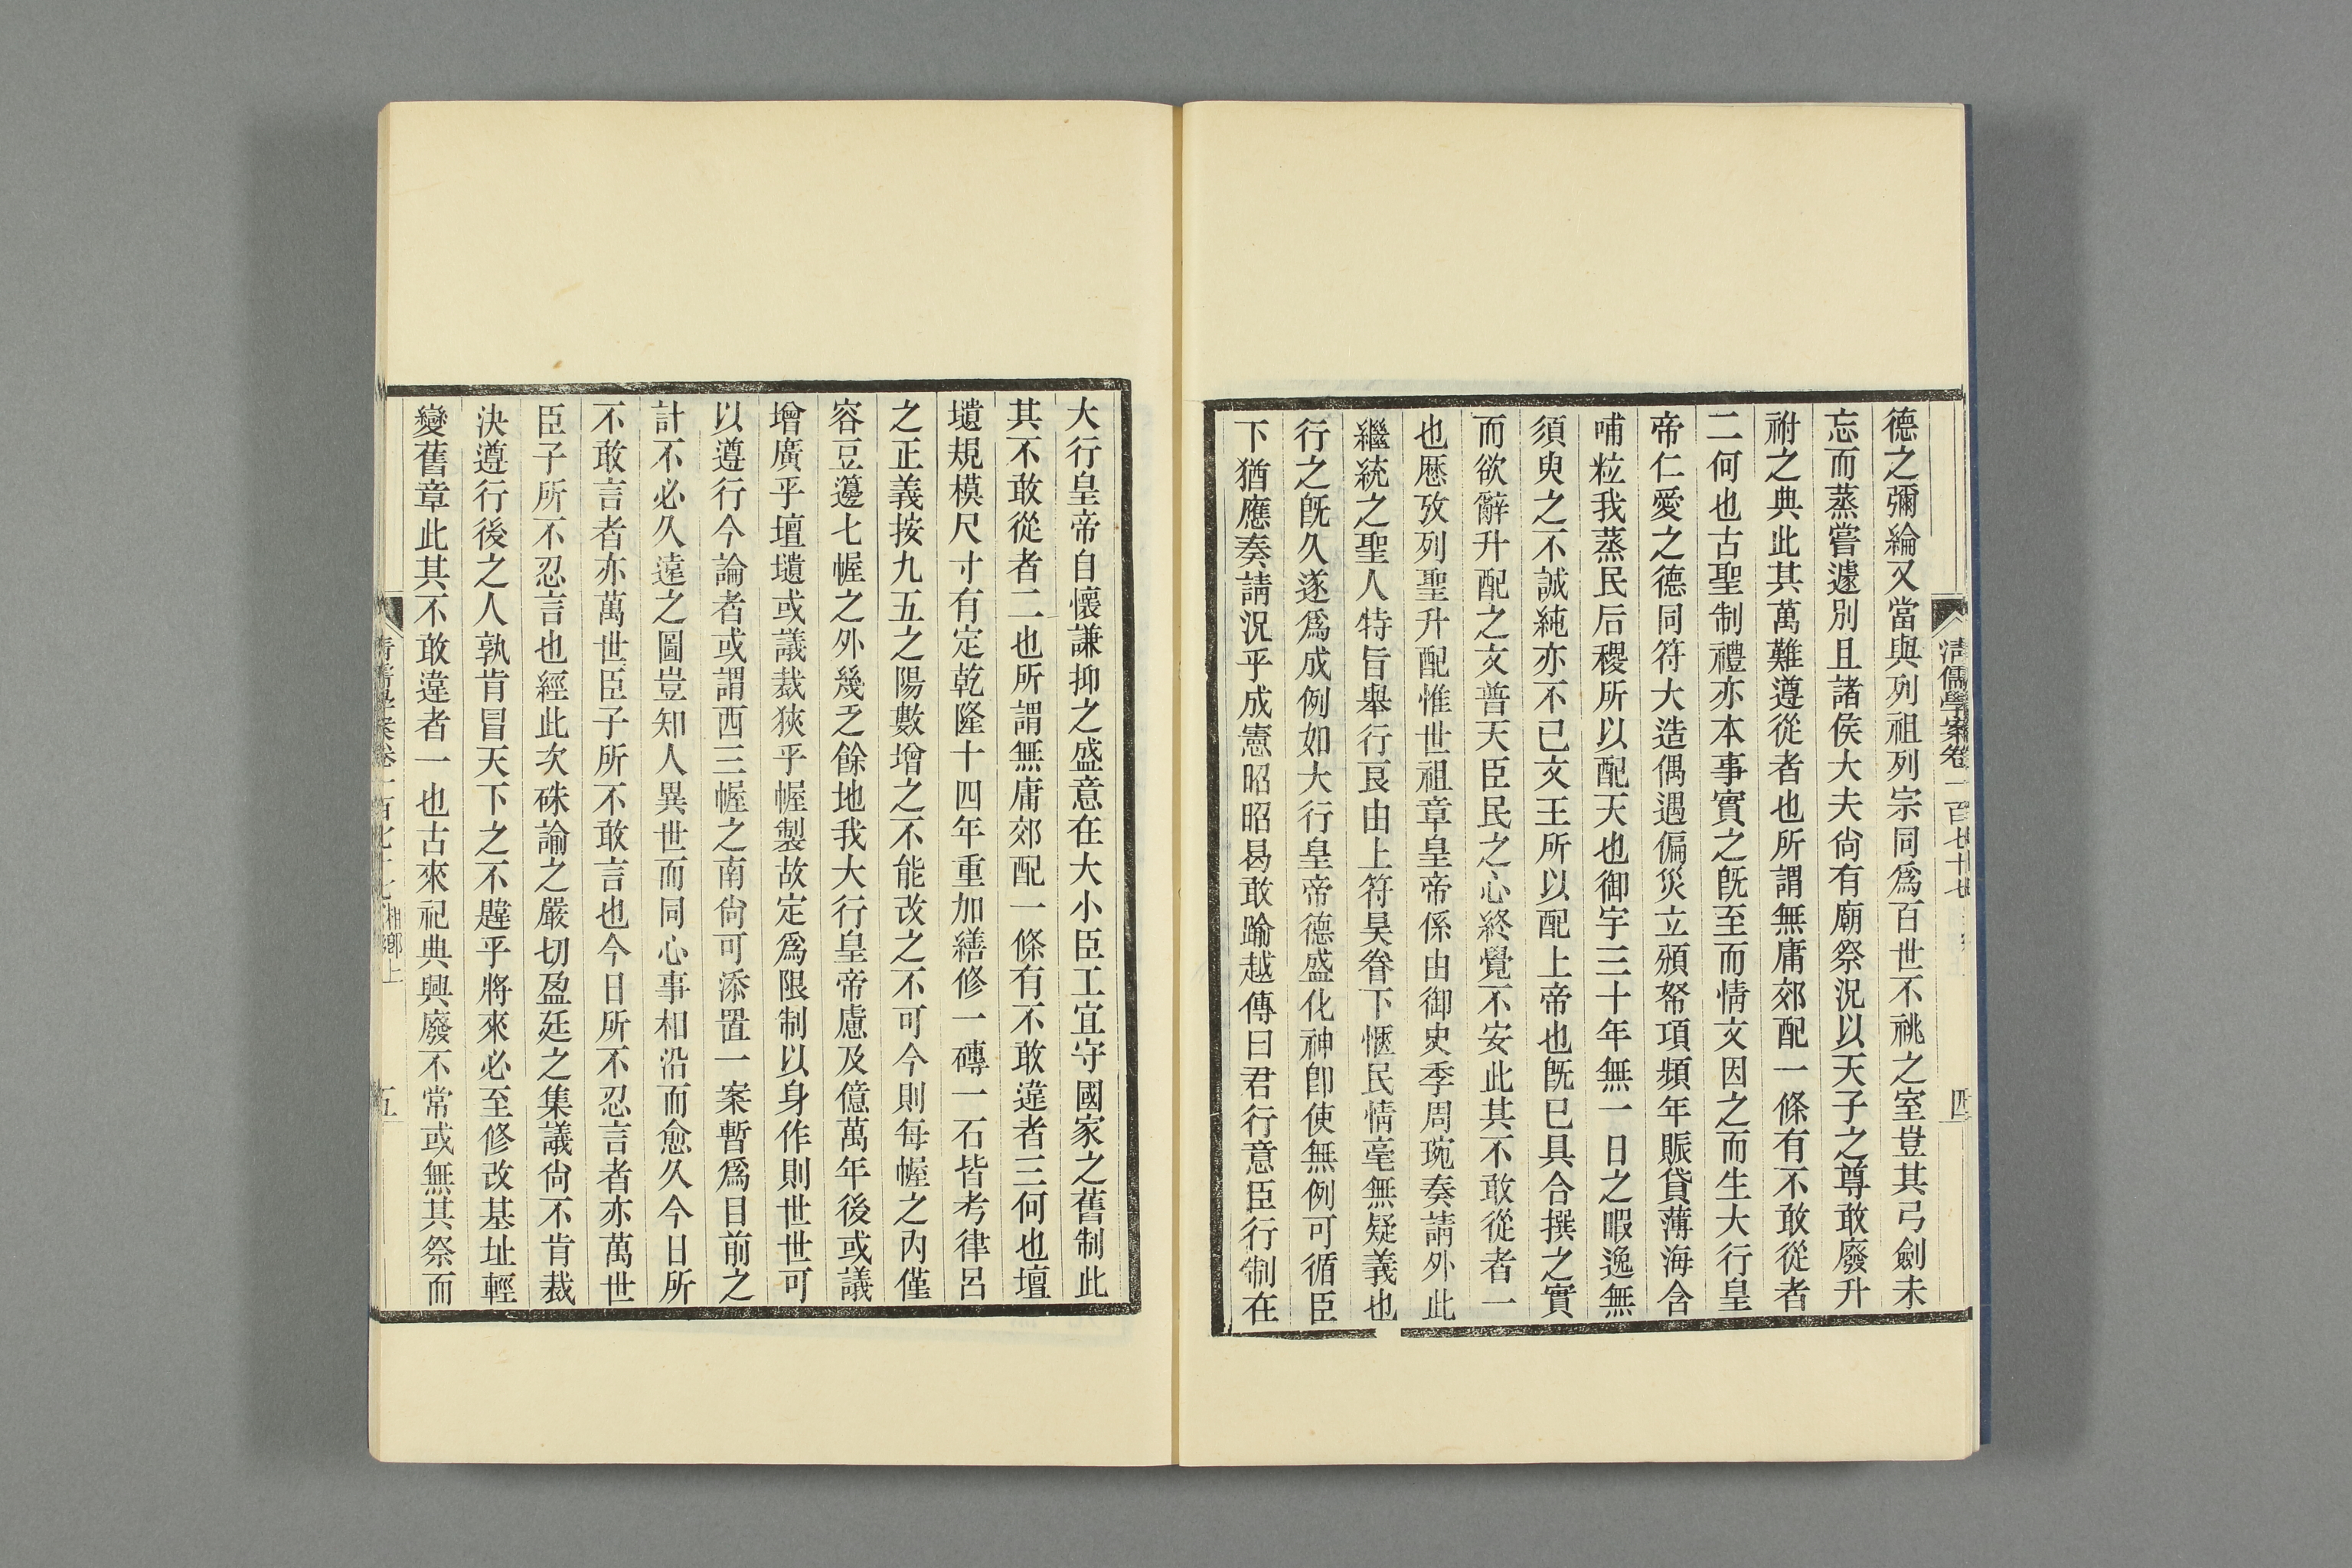 清儒學案卷一百七十七
四
德之彌綸又當與列祖列宗同爲百世不祧之室豈其弓劍未
忘而蒸嘗遽別且諸侯大夫尙有廟祭況以天子之尊敢廢升
祔之典此其萬難遵從者也所謂無庸郊配一條有不敢從者
二何也古聖制禮亦本事實之旣至而情文因之而生大行皇
帝仁愛之德同符大造偶遇偏災立頒帑項頻年賑貸薄海含
哺粒我蒸民后稷所以配天也御宇三十年無一日之暇逸無
須臾之不誠純亦不已文王所以配上帝也旣已具合撰之實
而欲辭升配之文普天臣民之心終覺不安此其不敢從者一
也歷攷列聖升配惟世祖章皇帝係由御史季周琬奏請外此
繼統之聖人特旨舉行良由上符昊眷下愜民情毫無疑義也
行之旣久遂爲成例如大行皇帝德盛化神卽使無例可循臣
下猶應奏請況乎成憲昭昭曷敢踰越傳曰君行意臣行制在
大行皇帝自懷謙抑之盛意在大小臣工宜守國家之舊制此
其不敢從者二也所謂無庸郊配一條有不敢違者三何也壇
壝規模尺寸有定乾隆十四年重加繕修一磚一石皆考律呂
之正義按九五之陽數增之不能改之不可今則每幄之內僅
容豆籩七幄之外幾乏餘地我大行皇帝慮及億萬年後或議
增廣乎壇壝或議裁狹乎幄製故定爲限制以身作則世世可
以遵行今論者或謂西三幄之南尙可添置一案暫爲目前之
計不必久遠之圖豈知人異世而同心事相沿而愈久今日所
不敢言者亦萬世臣子所不敢言也今日所不忍言者亦萬世
臣子所不忍言也經此次硃諭之嚴切盈廷之集議尙不肯裁
決遵行後之人孰肯冒天下之不韙乎將來必至修改基址輕
變舊章此其不敢違者一也古來祀典興廢不常或無其祭而
清儒學案卷一百七十七 湘鄉上
五